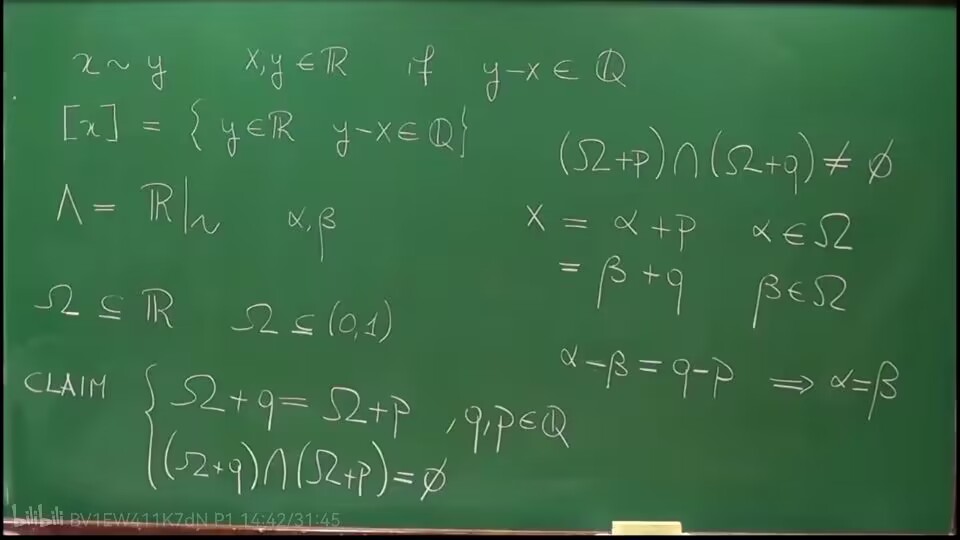 x ~ y x,y ∈ ℝ if y-x ∈ ℚ
[x] = { y∈ℝ y-x∈ℚ}
Λ = ℝ|~ α,β
Ω ⊆ ℝ Ω ⊆ (0,1)
CLAIM { Ω+q = Ω+p , q,p∈ℚ
(Ω+q)∩(Ω+p) = ∅
(Ω+p)∩(Ω+q) ≠ ∅
x = α+p α∈Ω
= β+q β∈Ω
α-β = q-p ⟹ α=β
bilibili BV1EW411K7dN P1 14:42/31:45